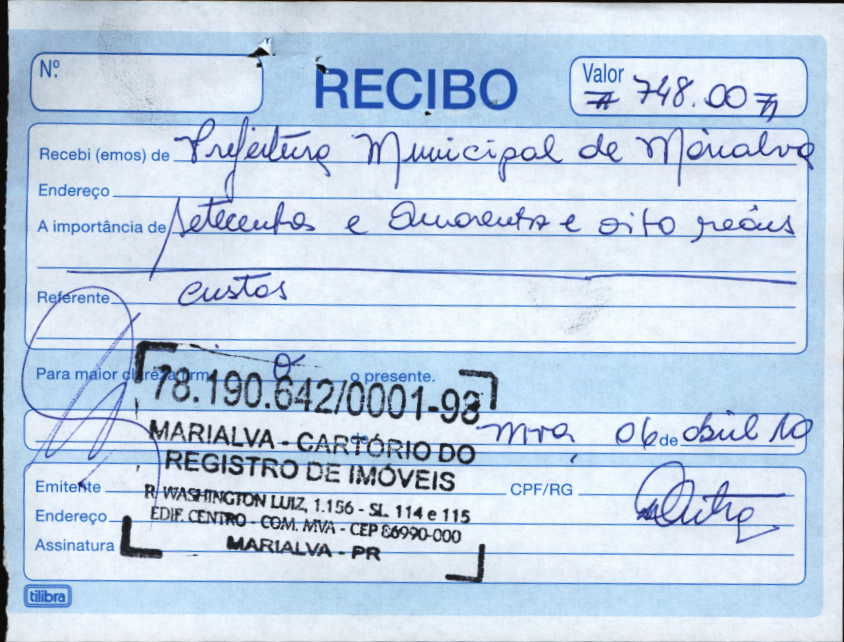 Nº
RECIBO
Valor 748.00
Recebi (emos) de Prefeitura Municipal de Marialva
Endereço
A importância de setecentos e Quarenta e oito reais
Referente custas
Para maior clareza firm o o presente.
78.190.642/0001-98
Mva, 06 de abril 10
MARIALVA - CARTÓRIO DO
REGISTRO DE IMÓVEIS
Emitente CPF/RG
R. WASHINGTON LUIZ, 1.156 - SL. 114 e 115
Endereço
EDIF. CENTRO - COM. MVA - CEP 86990-000
Assinatura
MARIALVA - PR
tilibra